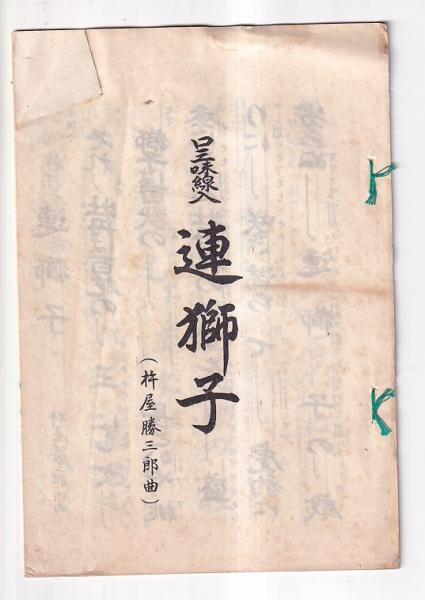 口三味線入
連獅子
（杵屋勝三郎曲）